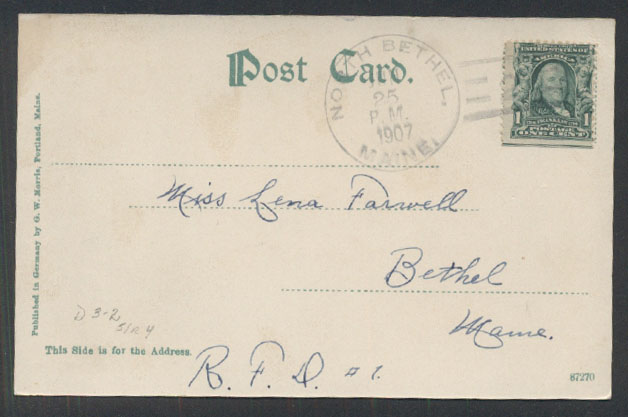 Post Card.
NORTH BETHEL,
25
P.M.
1907
MAINE.
UNITED STATES OF
AMERICA
1 1
FRANKLIN
POSTAGE
ONE CENT
Miss Lena Farwell
Bethel
Maine.
R. F. D. #1.
D 3-2
S/R 4
This Side is for the Address.
Published in Germany by G. W. Morris, Portland, Maine.
87270